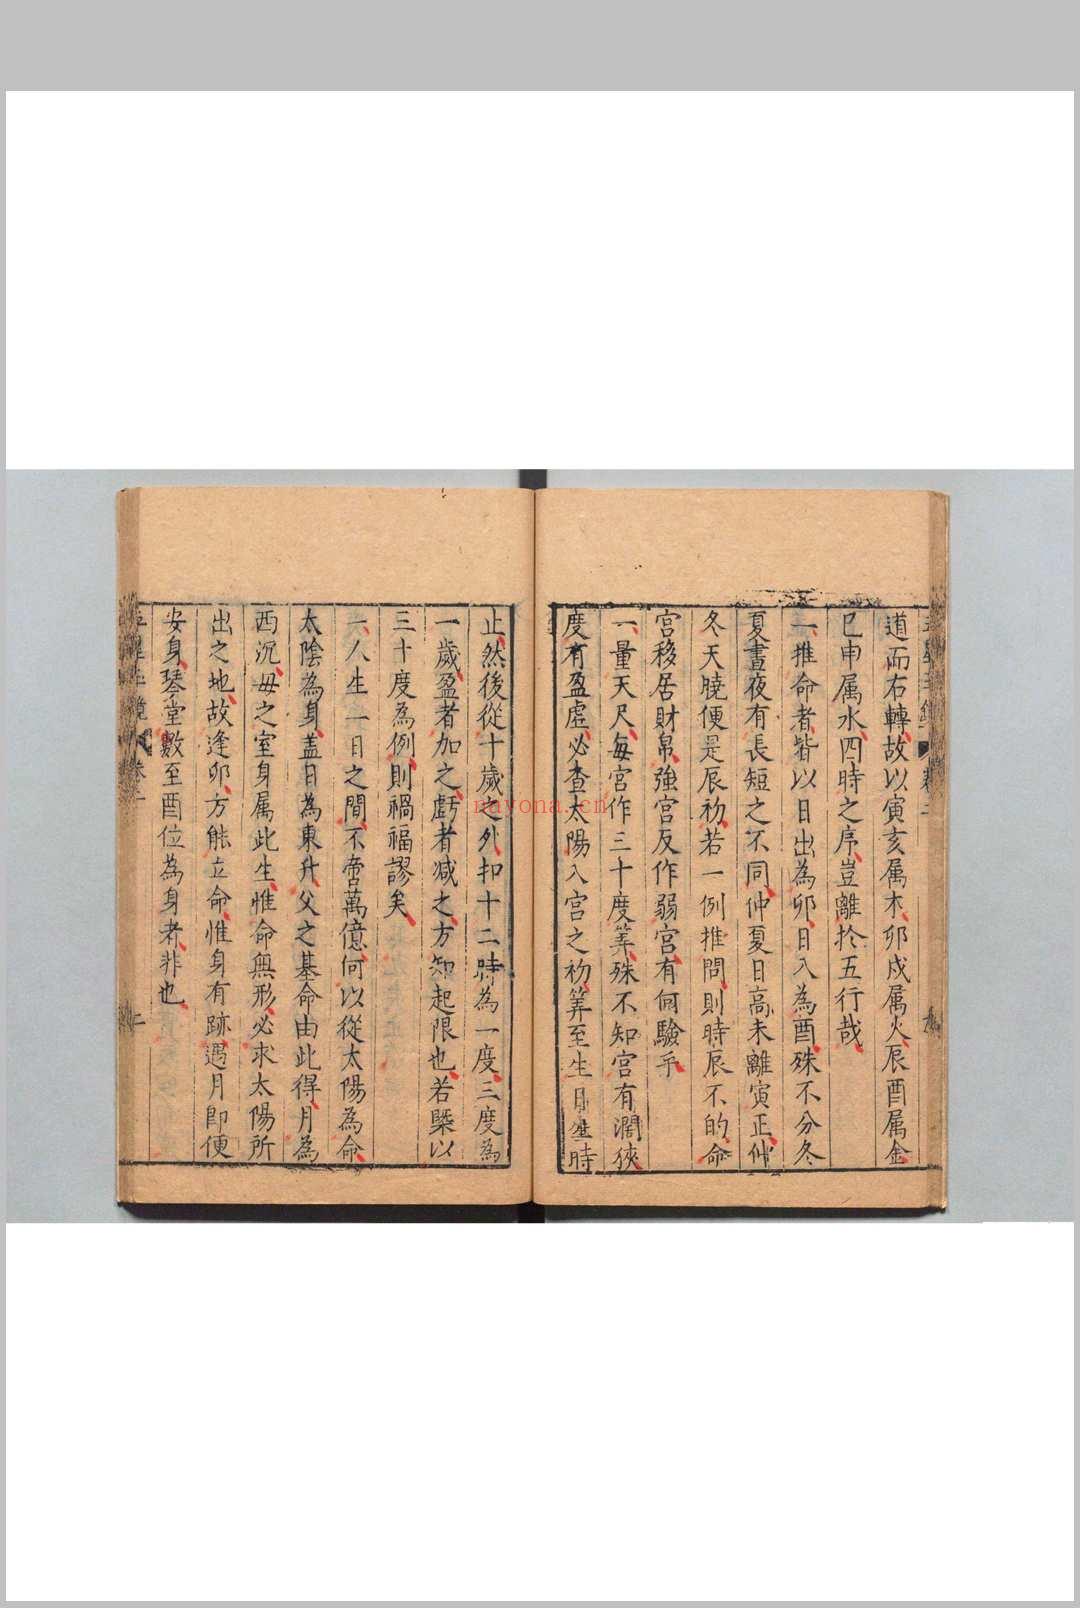 道而右轉故以寅亥属木卯戍属火辰酉属金
巳申属水四時之序豈離於五行哉
一推命者皆以日出為卯日入為酉殊不分冬
夏晝夜有長短之不同仲夏日高未離寅正仲
冬天曉便是辰初若一例推問則時辰不的命
宮移居財帛強宮反作弱宮有何驗乎
一量天尺每宮作三十度筭殊不知宮有濶狹
度有盈虛必查太陽入宮之初筭至生日生時
止然後從十歲之外扣十二時為一度三度為
一歲盈者加之虧者减之方知起限也若槩以
三十度為例則禍福謬矣
一人生一日之間不啻萬億何以從太陽為命
太陰為身盖日為東升父之基命由此得月為
西沉母之室身属此生惟命無形必求太陽所
出之地故逢卯方能立命惟身有跡遇月即便
安身琴堂數至酉位為身者非也
nayona.cn